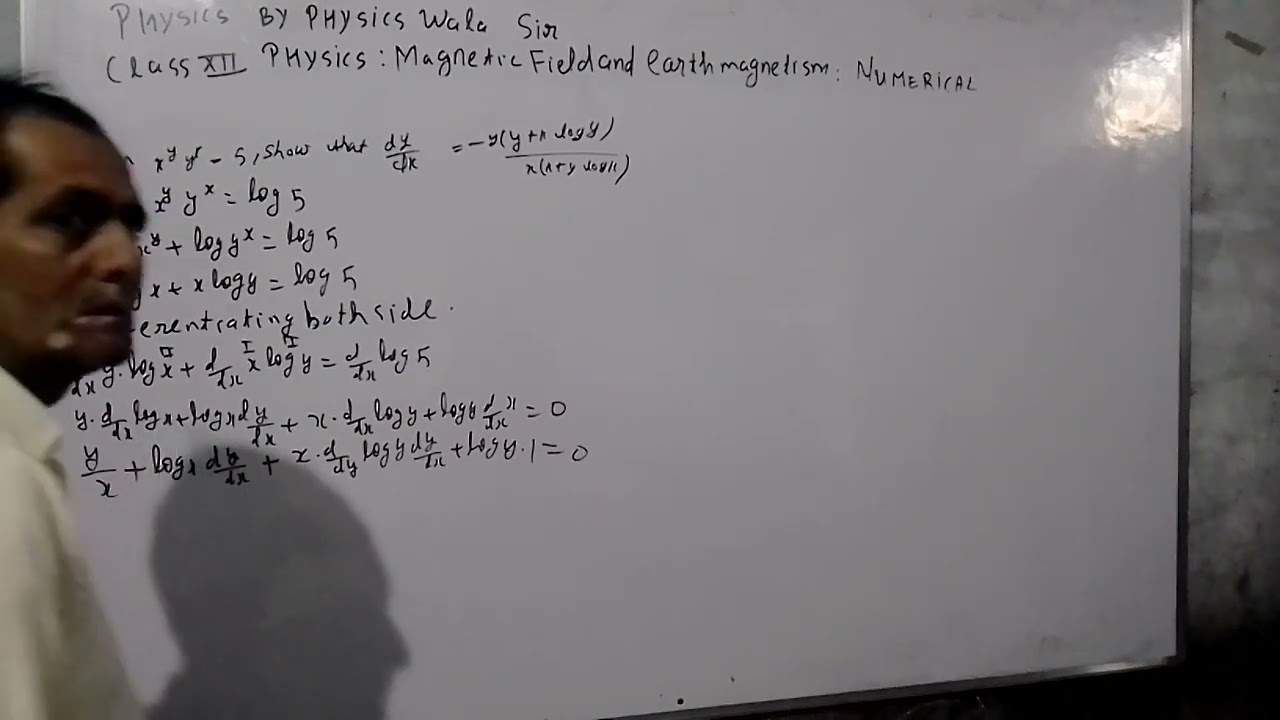 Physics By PHYsics Wala Sir
Class XII PHYsics : Magnetic Field and Earth magnetism : NUMERICAL
x^y y^x - 5, show that dy/dx = -y(y+x log y)/x(x+y log x)
x^y y^x = log 5
x^y + log y^x = log 5
x + x log y = log 5
erentiating both side.
dx y. log x^II + d/dx x^I log^II y = d/dx log 5
y. d/dx log x + log x dy/dx + x. d/dx log y + log y d/dx x = 0
y/x + log x dy/dx + x. d/dy log y dy/dx + log y. 1 = 0